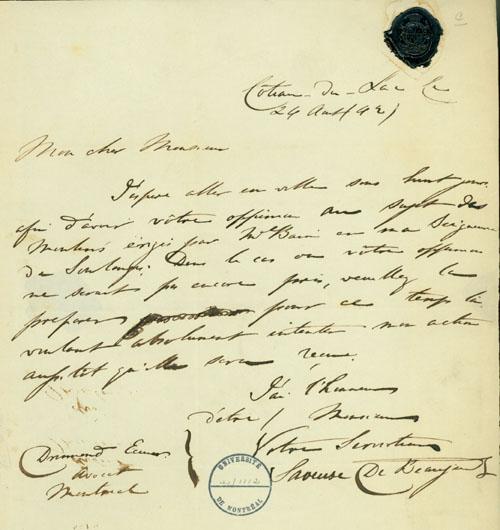 Coteau-du-Lac le
24 Aout (42)
Mon cher Monsieur
J'espere aller en ville sous huit jours
afin d'avoir vôtre oppinion au sujet des
Moulins érigés par Mr en ma Seigneurie
de Soulanges. Dans le cas ou vôtre oppinion
ne serait pas encore prise, veuillez la
preparer pour ce temps là
voulant absolument intenter mon action
aussitot qu'elle sera reçue.
J'ai l'honneur
d'être / Monsieur
Votre Serviteur
Saveuse De Beaujeu
Drumond Ecuier
Avocat
Montreal
UNIVERSITÉ
DE MONTRÉAL